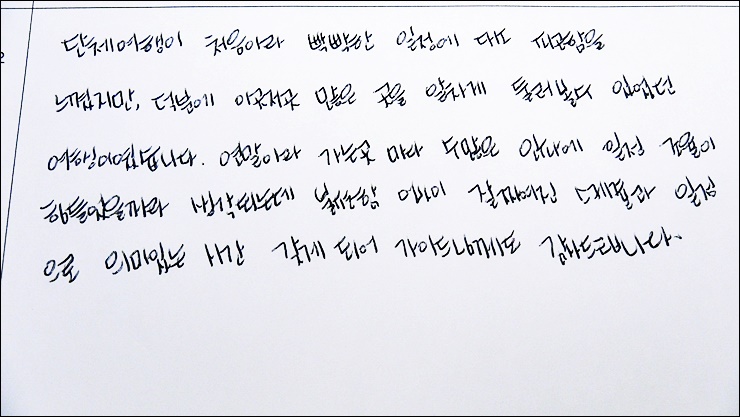 단체여행이 처음이라 빡빡한 일정에 다소 피곤함을
느꼈지만, 덕분에 이곳저곳 많은 곳을 알차게 둘러볼수 있었던
여행이였습니다. 연말이라 가는곳 마다 수많은 인파에 일정 조율이
힘들었을거라 생각되는데 불편함 없이 잘 짜여진 스케줄과 일정
으로 의미있는 시간 갖게 되어 가이드님께도 감사드립니다.